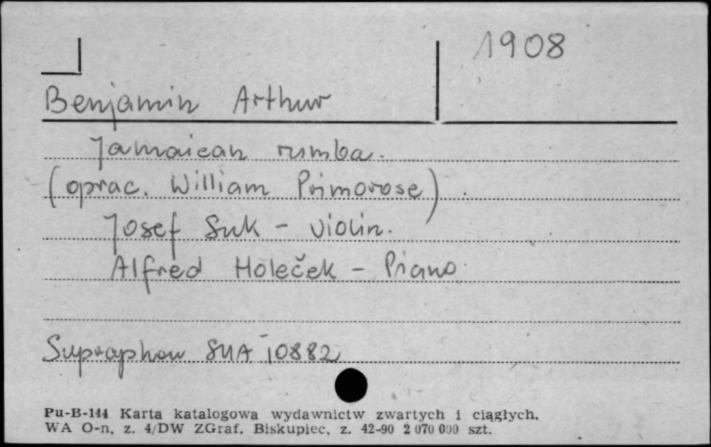 1908
Benjamin Arthur
Jamaican rumba.
(oprac. William Primorose)
Josef Suk - violin.
Alfred Holeček - Piano
Supraphon SUA 10882
Pu-B-144 Karta katalogowa wydawnictw zwartych i ciągłych.
WA O-n, z. 4/DW ZGraf. Biskupiec, z. 42-90 2 070 000 szt.